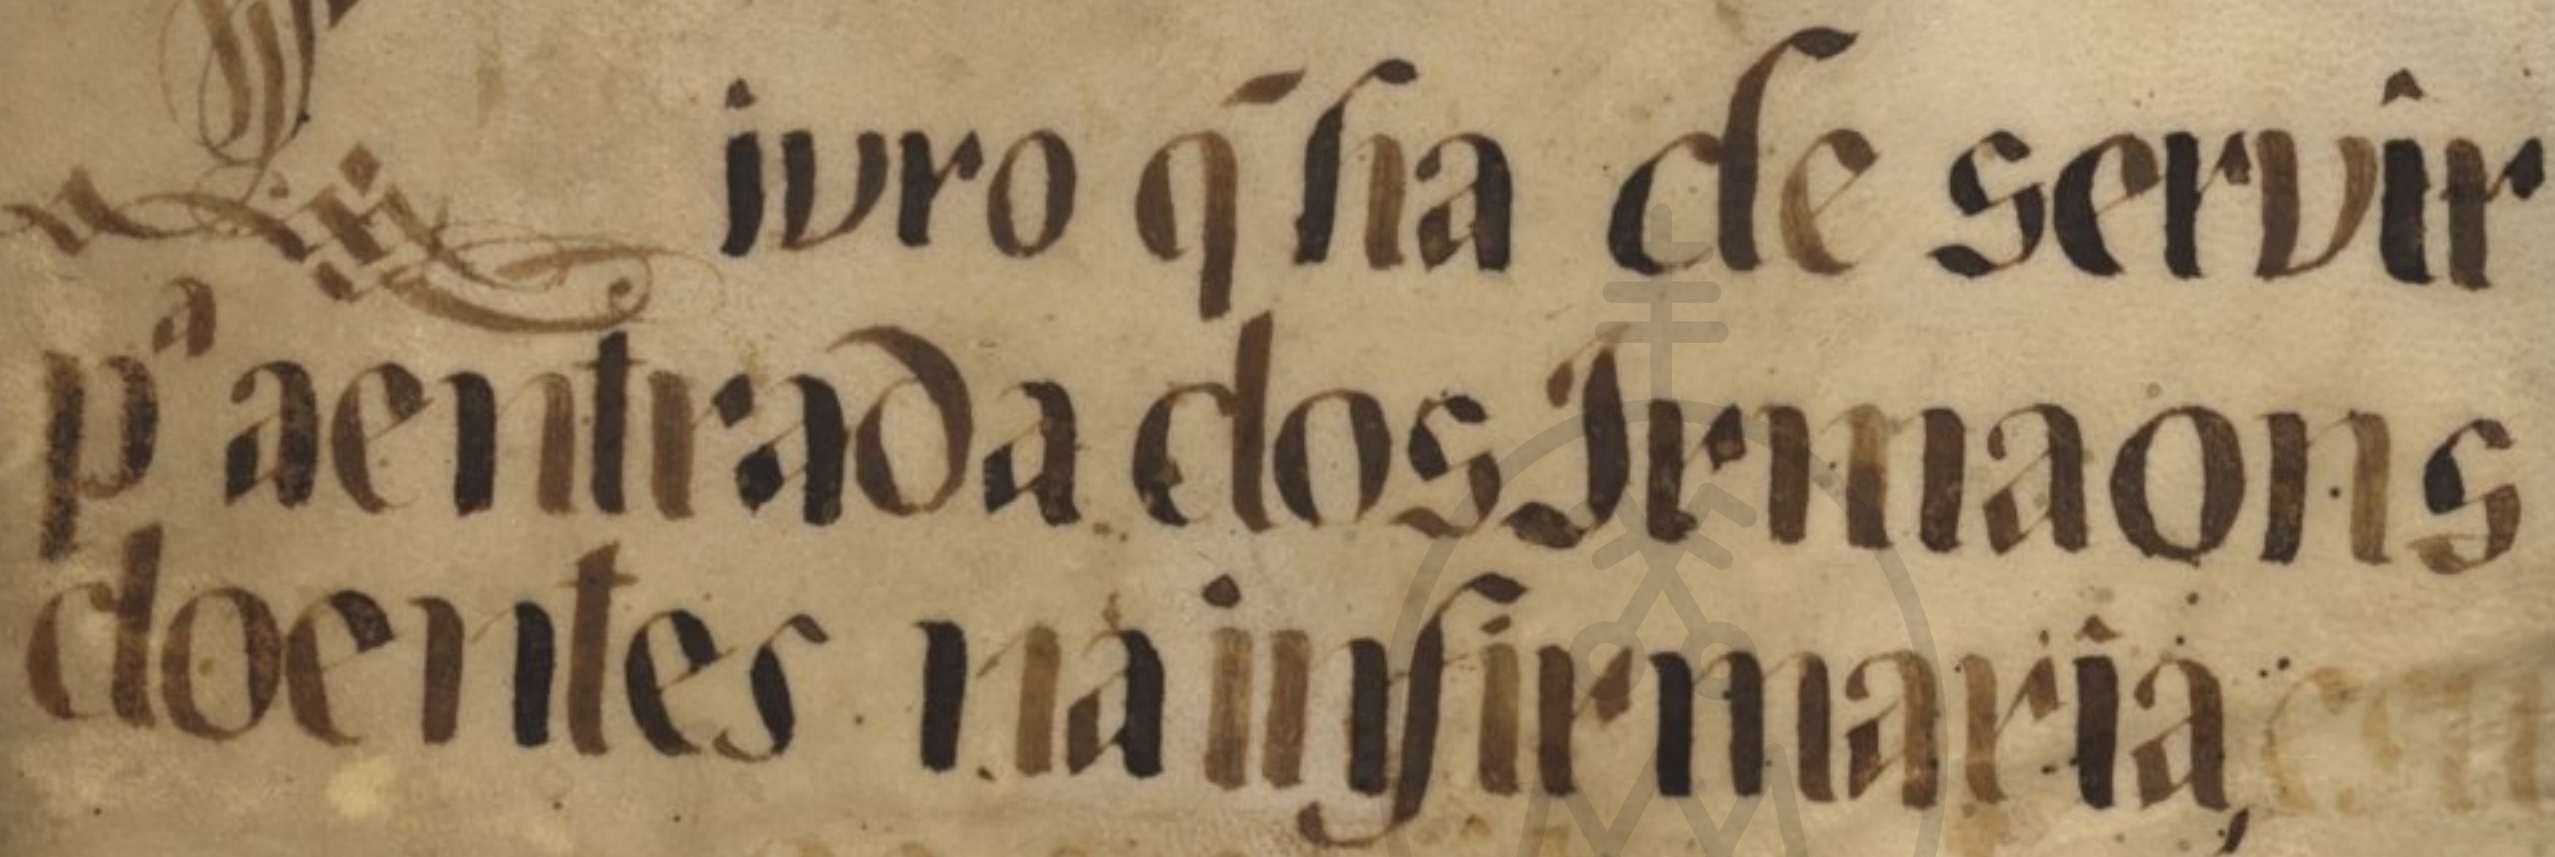 Livro q̃ ha de servir
pª a entrada dos Irmaons
doentes na infirmaria,